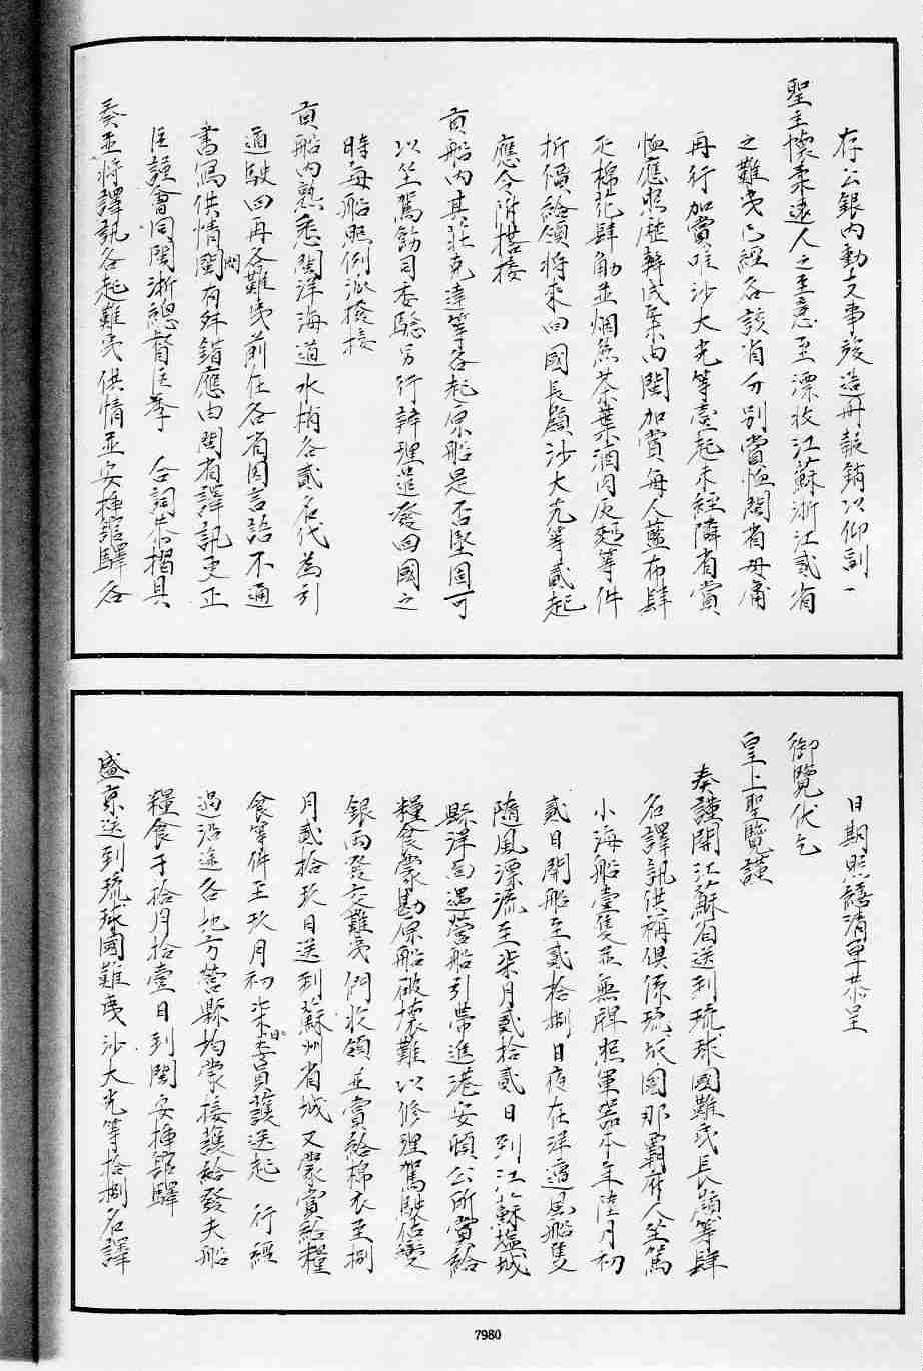 存公銀內動支事竣造冊報銷以仰副一
聖主懷柔遠人之至意至漂收江蘇浙江貳省
之難夷已經各該省分別賞恤閩省毋庸
再行加賞唯沙大光等壹起未經隣省賞
恤應照歷辦成案由閩加賞每人藍布肆
疋棉花肆觔並烟茶葉酒肉灰麪等件
折價給領將來回國長顏沙大光等貳起
應令附搭接
貢船內其壯克達等各起原船是否堅固可
以坐駕飭司委驗另行辦理遣發回國之
時每船照例派撥接
貢船內熟悉閩洋海道水梢各貳名代為引
通駛回再各難夷前在各省因言語不通
書寫供情間有舛錯應由閩省譯訊更正
臣謹會同閩浙總督臣季 合詞恭摺具
奏並將譯訊各起難夷供情並安揷館驛各
日期照繕清單恭呈
御覽伏乞
皇上聖覽謹
奏謹開江蘇省送到琉球國難民長顏等肆
名譯訊供稱俱係琉球國那霸府人坐駕
小海船壹隻並無牌照軍器本年陸月初
貳日開船至貳拾捌日夜在洋遭風船隻
隨風漂流至柒月貳拾貳日到江蘇塩城
縣洋面遇營船引帶進港安頓公所賞給
糧食蒙勘原船破壞難以修理駕駛估變
銀兩發交難夷們收領並賞給棉衣至捌
月貳拾玖日送到蘇州省城又蒙賞給糧
食等件至玖月初柒日委員護送起 行經
過沿途各地方營縣均蒙接護給發夫船
糧食于拾月拾壹日到閩安揷館驛
盛京送到琉球國難夷沙大光等拾捌名譯
7980